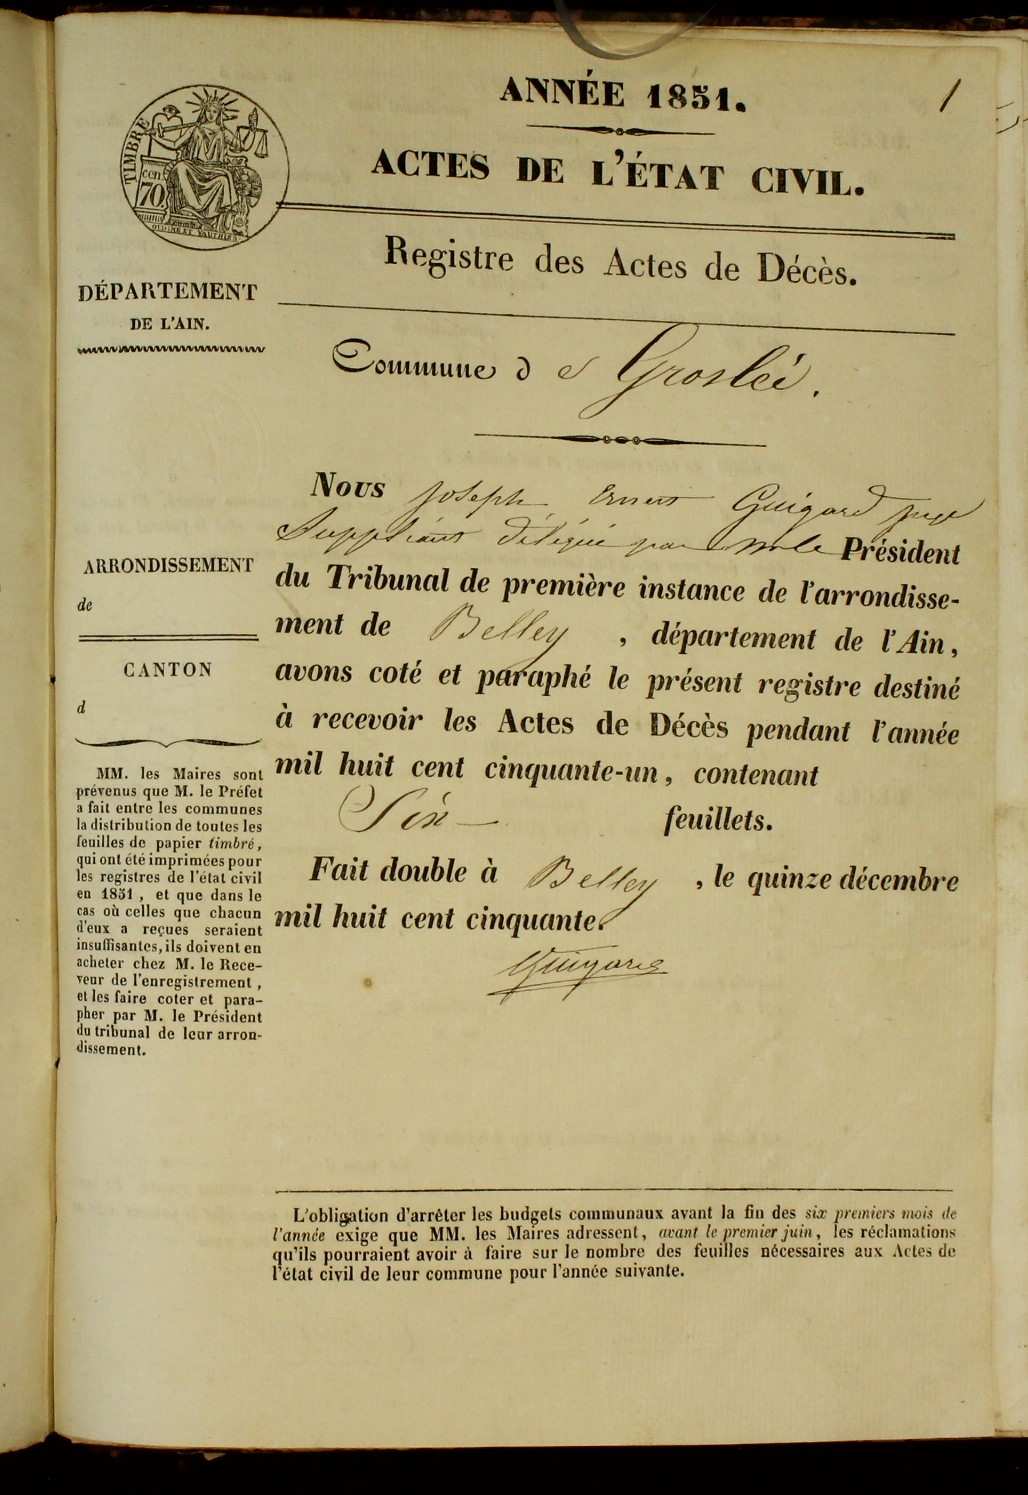 ANNÉE 1851.
1
ACTES DE L'ÉTAT CIVIL.
TIMBRE
cen.
70
Registre des Actes de Décès.
DÉPARTEMENT
DE L'AIN.
Commune d e Groslée.
Nous Joseph Ernest Guigard juge
Suppléant délégué par Mr le Président
du Tribunal de première instance de l'arrondisse-
ment de Belley, département de l'Ain,
avons coté et paraphé le présent registre destiné
à recevoir les Actes de Décès pendant l'année
mil huit cent cinquante-un, contenant
Six feuillets.
Fait double à Belley, le quinze décembre
mil huit cent cinquante.
Guigard
ARRONDISSEMENT
de
CANTON
d
MM. les Maires sont
prévenus que M. le Préfet
a fait entre les communes
la distribution de toutes les
feuilles de papier timbré,
qui ont été imprimées pour
les registres de l'état civil
en 1851, et que dans le
cas où celles que chacun
d'eux a reçues seraient
insuffisantes, ils doivent en
acheter chez M. le Rece-
veur de l'enregistrement,
et les faire coter et para-
pher par M. le Président
du tribunal de leur arron-
dissement.
L'obligation d'arrêter les budgets communaux avant la fin des six premiers mois de
l'année exige que MM. les Maires adressent, avant le premier juin, les réclamations
qu'ils pourraient avoir à faire sur le nombre des feuilles nécessaires aux Actes de
l'état civil de leur commune pour l'année suivante.